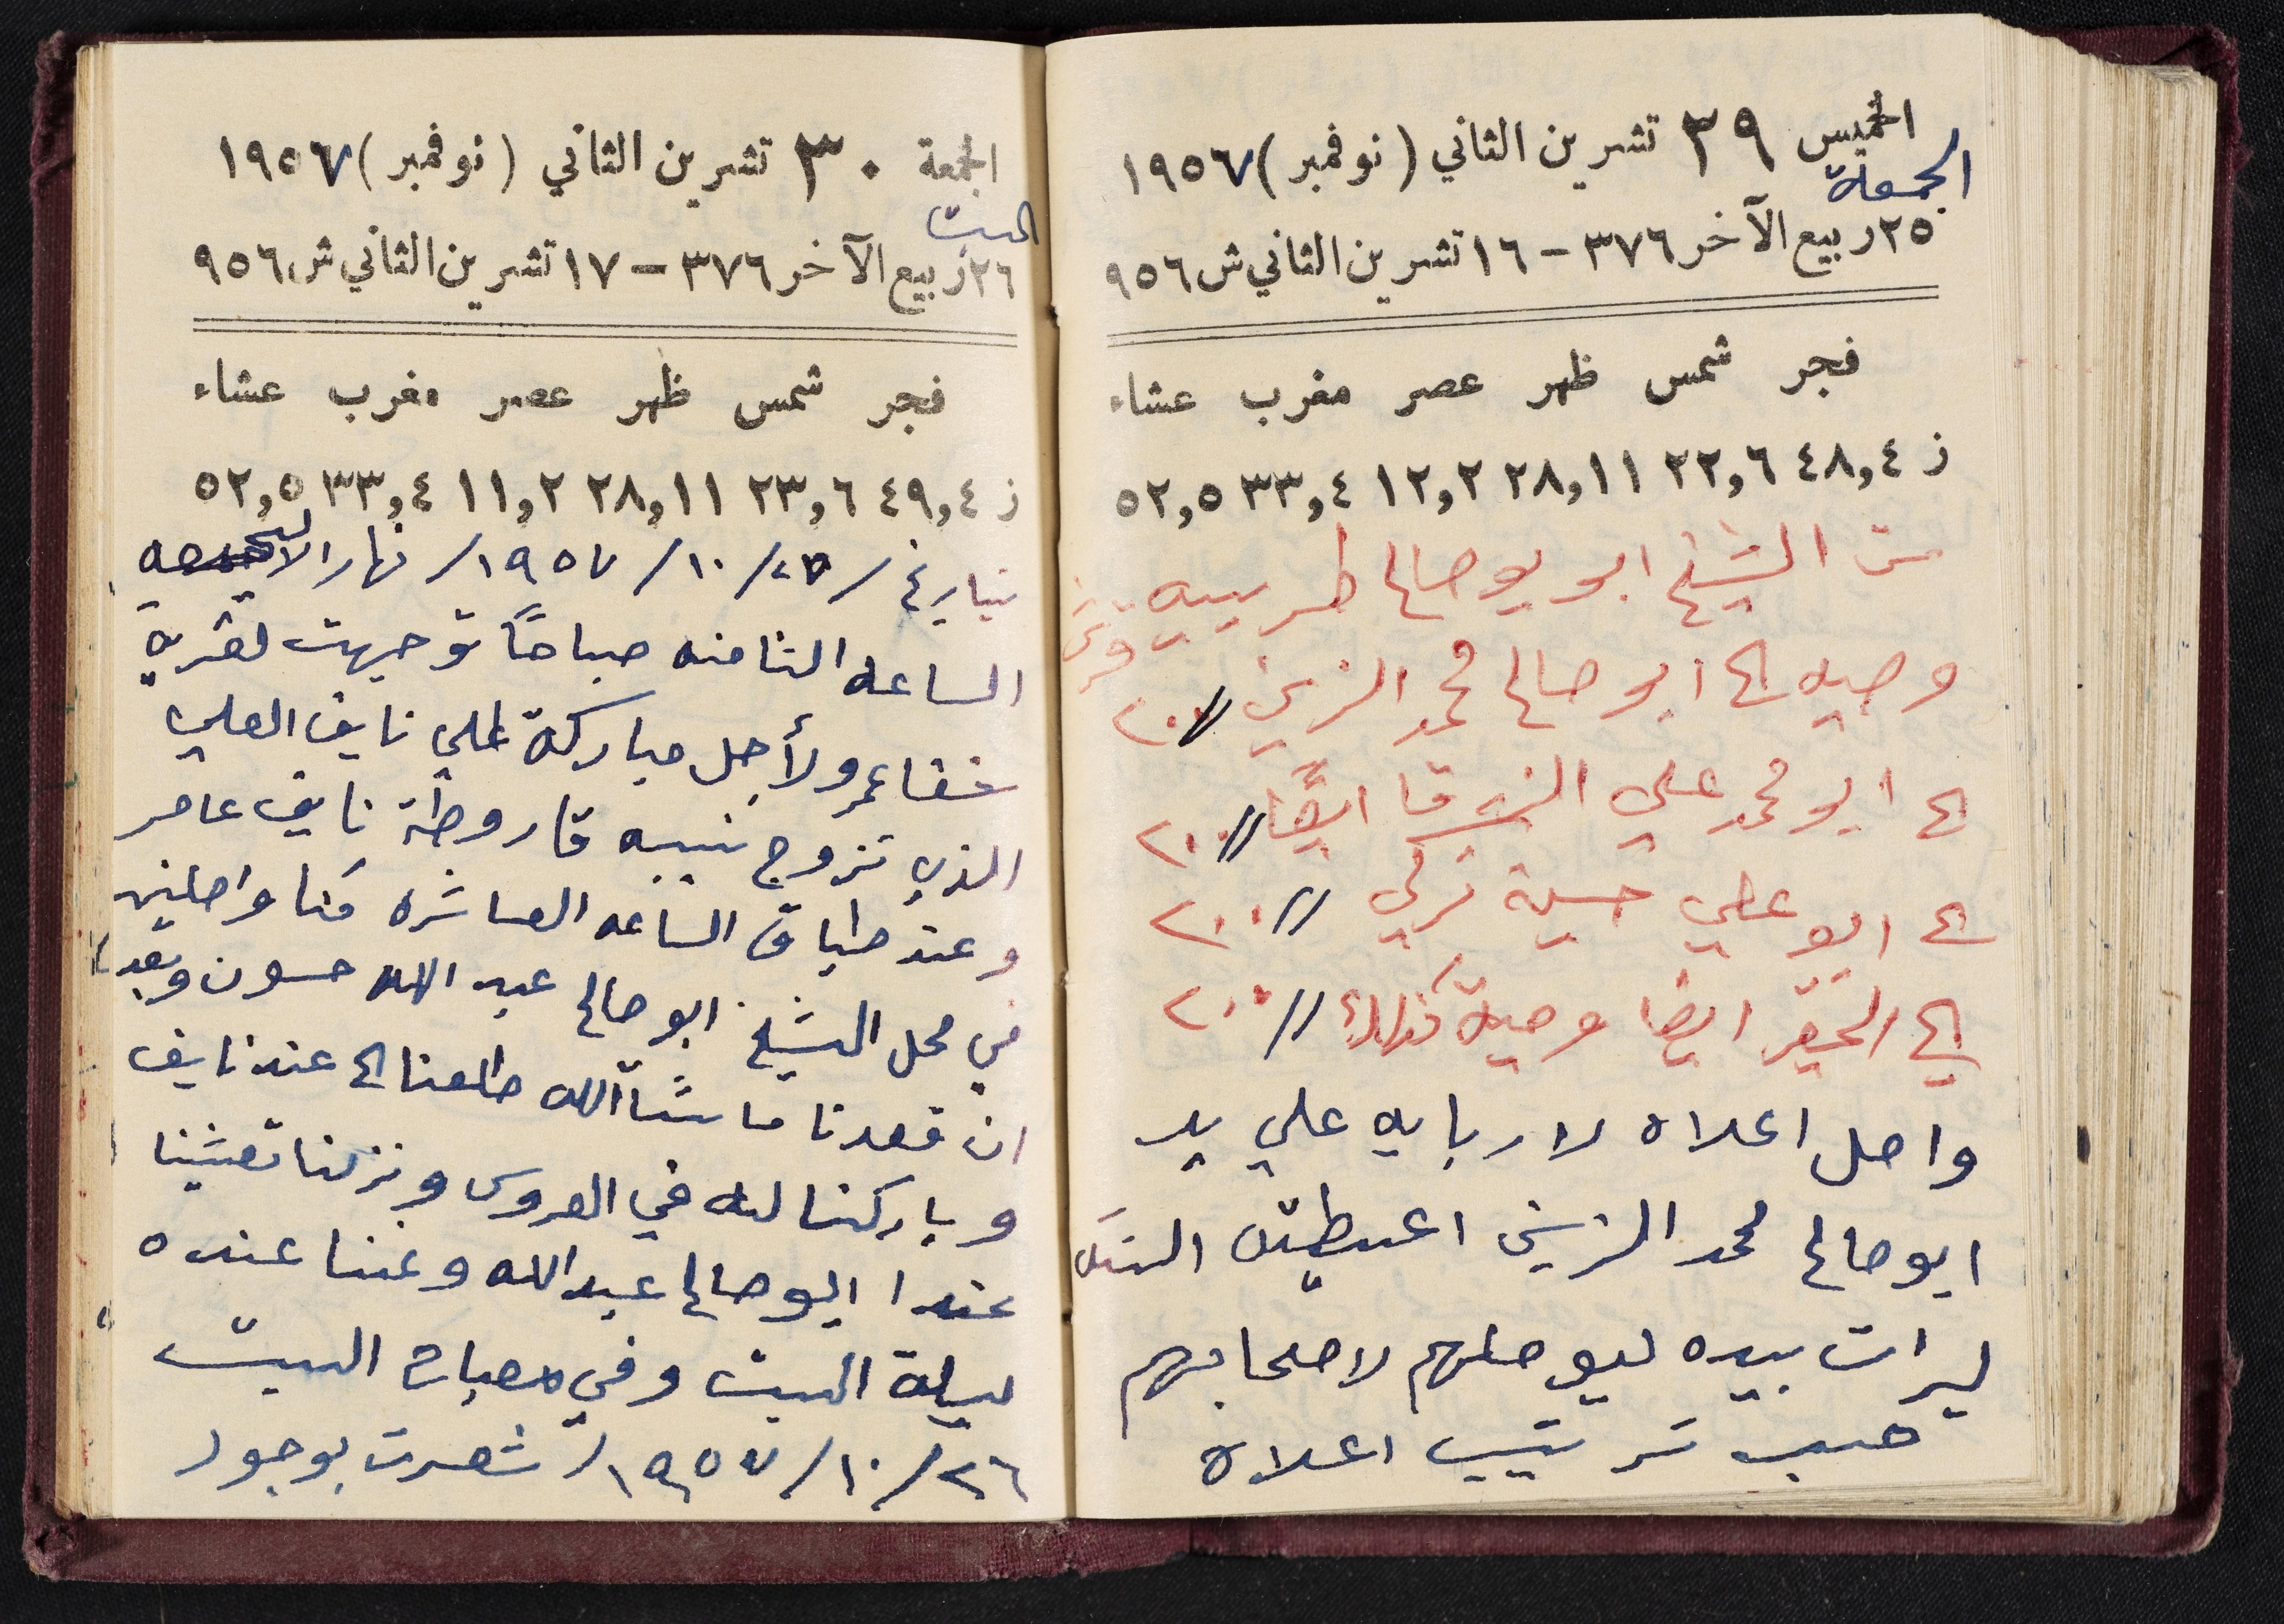 الخميس ٢٩ تشرين الثاني (نوفمبر) ١٩٥٧
الجمعة
٢٥ ربيع الآخر ٣٧٦ - ١٦ تشرين الثاني ش ٩٥٦
فجر شمس ظهر عصر مغرب عشاء
ز ٤٨,٤ ٢٢,٦ ٢٨,١١ ١٢,٢ ٣٣,٤ ٥٢,٥
من الشيخ ابو يوصالح طريبيه
وصيه الى ابو صالح محمد الزيني // ٢٠٠
الى ابو محمد علي الزرقا ايضًا // ٢٠٠
الى ابو علي حسين تركي // ٢٠٠
الى الحقير ايضا وصية // ٢٠٠
واصل اعلاه لاربابه علي يد
ابو صالح محمد الزيني اعطيتن
ليرات بيده ليوصلهم لاصحابهم
حسب ترتيب اعلاه
الجمعة ٣٠ تشرين الثاني (نوفمبر) ١٩٥٧
السبت
٢٦ ربيع الآخر ٣٧٦ - ١٧ تشرين الثاني ش ٩٥٦
فجر شمس ظهر عصر مغرب عشاء
ز ٤٩,٤ ٢٣,٦ ٢٨,١١ ١١,٢ ٣٣,٤ ٥٢,٥
بتاريخ /٢٥/ ١٠/ ١٩٥٧/ نهار الجمعه
الساعه الثامنه صباحًا توجهت لقرية
شفاعمرو لأجل مباركة نايف العلي
الذي تزوج نايف عامر
وعند طباق الساعه العاشره كنا واصلين
في محل الشيخ ابو صالح عبد الله حسون وبعد
ان قعدنا ماشاآلله طلعنا الى عند نايف
وباركنا له في العروس ونزلنا تعشينا
عند ابو صالح عبدالله ونمنا عنده
ليلة السبت وفي صباح السبت
٢٦/ ١٠/ ١٩٥٧/ شعرت بوجود